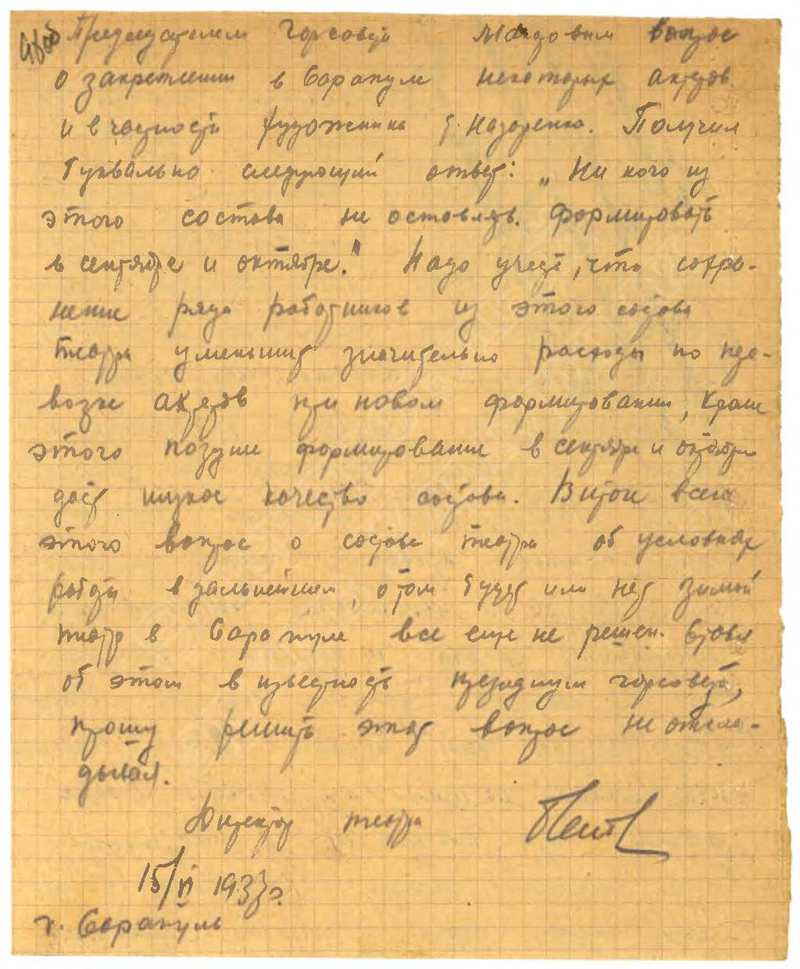 Председателем Горсовета вопрос
о закреплении в Сарапуле некоторых актеров
и в частности художника т. Назаренко. Получил
буквально следующий ответ: „Ни кого из
этого состава не оставлять. Формировать
в сентябре и октябре." Надо учесть, что сохра-
нение ряда работников из этого состава
театра уменьшит значительно расходы по пере-
возке актеров при новом формировании, кроме
этого позднее формирование в сентябре и октябре
даст низкое качество состава. В итоге всего
этого вопрос о составе театра об условиях
работы в дальнейшем, о том будет или нет зимой
театр в Сарапуле все еще не решен. Ставя
об этом в известность президиум горсовета,
прошу решить этот вопрос не откла-
дывая.
Директор театра
15/VI 1933г.
г. Сарапуль